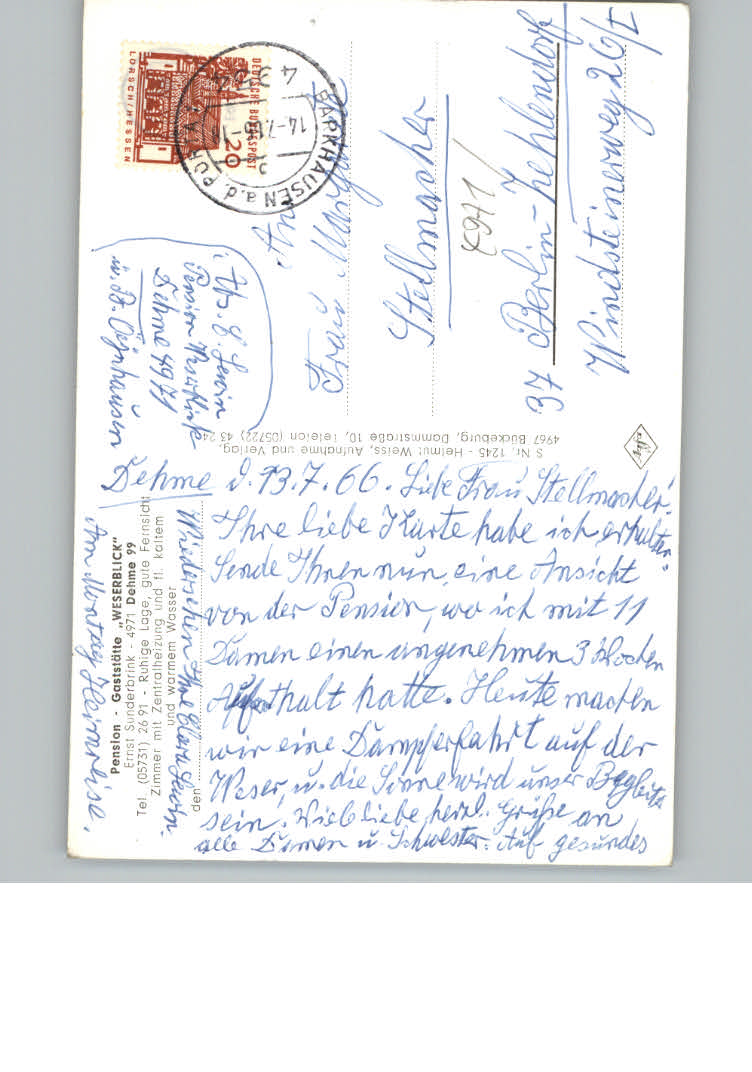 Pension - Gaststätte „WESERBLICK"
Ernst Sunderbrink - 4971 Dehme 99
Tel. (05731) 26 91 - Ruhige Lage, gute Fernsicht
Zimmer mit Zentralheizung und fl. kaltem
und warmem Wasser
den
Dehme d. 13.7.66. Liebe Frau Stellmacher!
Ihre liebe Karte habe ich erhalten.
Sende Ihnen nun eine Ansicht
von der Pension, wo ich mit 11
Damen einen angenehmen 3 Wochen
Aufenthalt hatte. Heute machen
wir eine Dampferfahrt auf der
Weser, u. die Sonne wird unser Begleiter
sein. Viele liebe, herzl. Grüße an
alle Damen u. Schwester. Auf gesundes
Wiedersehen Ihre Clara Lewin.
Am Montag Heimreise.
S Nr. 1245 - Helmut Weiss, Aufnahme und Verlag,
4967 Bückeburg, Dammstraße 10, Telefon (05722) 43 24
Abs. C. Lewin
Pension Weserblick
Dehme 4971
ü. Bd. Oeynhausen
DEUTSCHE BUNDESPOST
20
LORSCH/HESSEN
BARKHAUSEN a.d. PORTA
14-7.
An
Frau
Stellmacher
4971
37 Berlin-Zehlendorf
Windsteinerweg 26/I